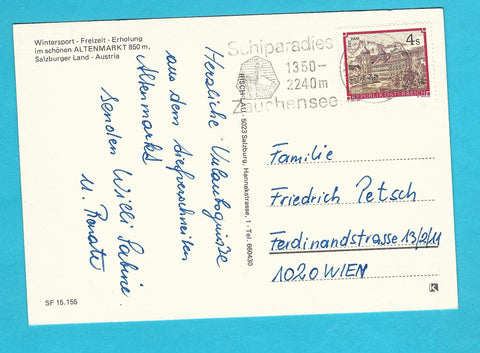 Wintersport - Freizeit - Erholung
im schönen ALTENMARKT 850 m,
Salzburger Land - Austria
Herzliche Urlaubsgrüße
aus dem tiefverschneiten
Altenmarkt
senden Willi Sabine
u. Renate
SF 15.155
RISCH-LAU, 5023 Salzburg, Hannakstrasse, 1 - Tel. 660430
Schiparadies
1350-
2240m
Zauchensee
4 S
REPUBLIK ÖSTERREICH
Familie
Friedrich Petsch
Ferdinandstrasse 13/2/11
1020 WIEN
K